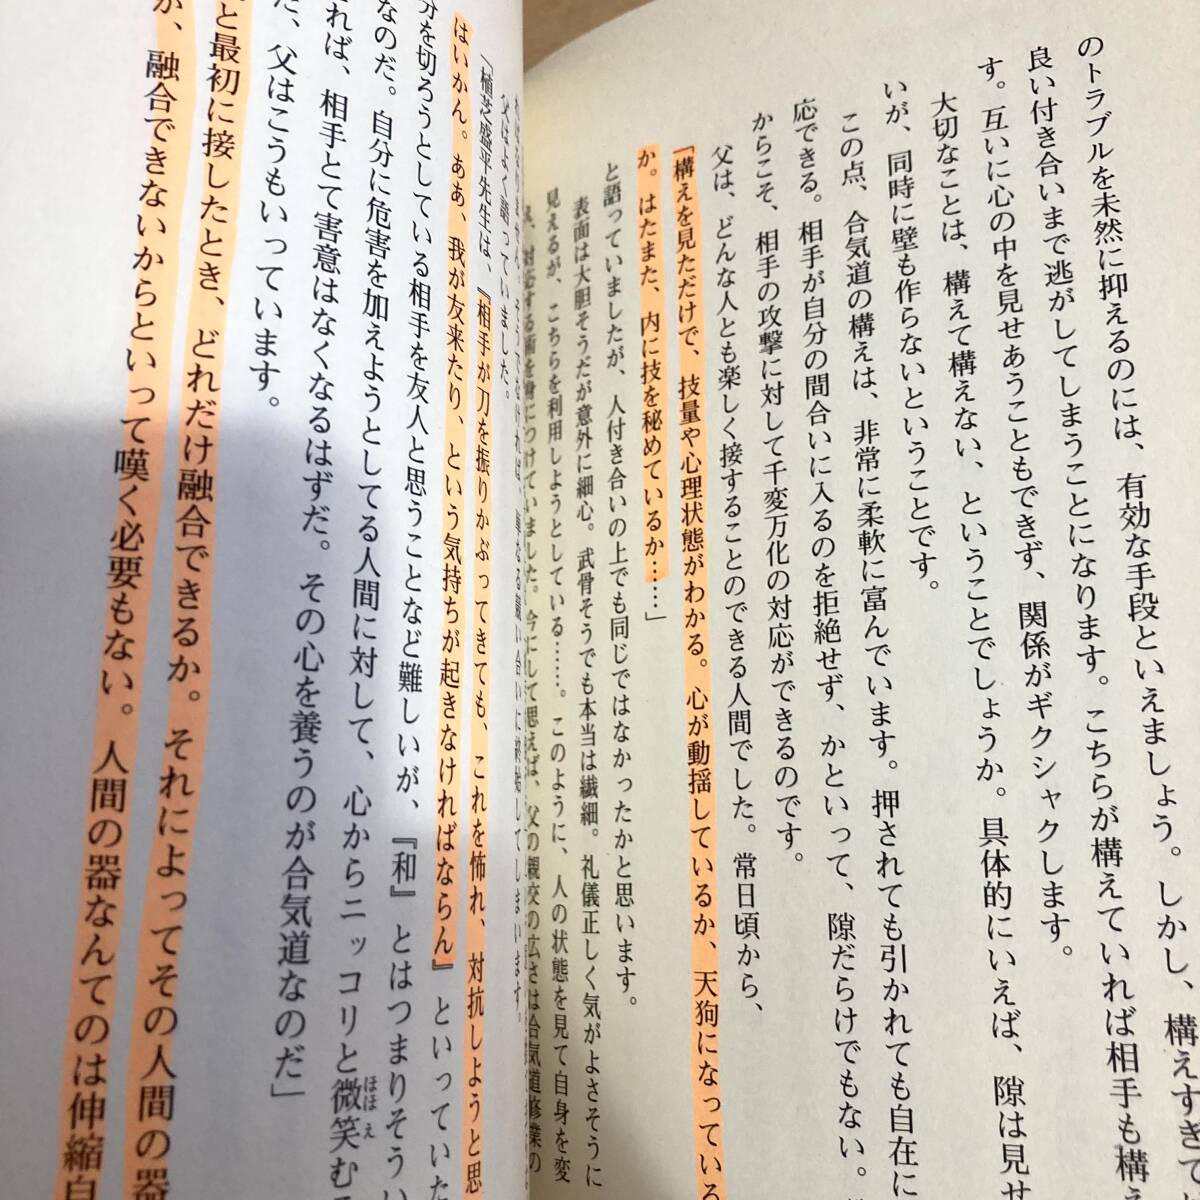 のトラブルを未然に抑えるのには、有効な手段といえましょう。しかし、構えすぎて
良い付き合いまで逃がしてしまうことになります。こちらが構えていれば相手も構え
す。互いに心の中を見せあうこともできず、関係がギクシャクします。
大切なことは、構えて構えない、ということでしょうか。具体的にいえば、隙は見せ
いが、同時に壁も作らないということです。
この点、合気道の構えは、非常に柔軟に富んでいます。押されても引かれても自在に
応できる。相手が自分の間合いに入るのを拒絶せず、かといって、隙だらけでもない。
からこそ、相手の攻撃に対して千変万化の対応ができるのです。
父は、どんな人とも楽しく接することのできる人間でした。常日頃から、
「構えを見ただけで、技量や心理状態がわかる。心が動揺しているか、天狗になっている
か。はたまた、内に技を秘めているか……」
と語っていましたが、人付き合いの上でも同じではなかったかと思います。
表面は大胆そうだが意外に細心。武骨そうでも本当は繊細。礼儀正しく気がよさそうに
見えるが、こちらを利用しようとしている……。このように、人の状態を見て自身を変
対応する術を身につけていました。今にして思えば、父の親交の広さは合気道修業の
父はよく語っていました。
「植芝盛平先生は、『相手が刀を振りかぶってきても、これを怖れ、対抗しようと思
はいかん。ああ、我が友来たり、という気持ちが起きなければならん』といっていた
分を切ろうとしている相手を友人と思うことなど難しいが、『和』とはつまりそうい
なのだ。自分に危害を加えようとしてる人間に対して、心からニッコリと微笑む
ほほえ
れば、相手とて害意はなくなるはずだ。その心を養うのが合気道なのだ」
た、父はこうもいっています。
と最初に接したとき、どれだけ融合できるか。それによってその人間の器
か、融合できないからといって嘆く必要もない。人間の器なんてのは伸縮自